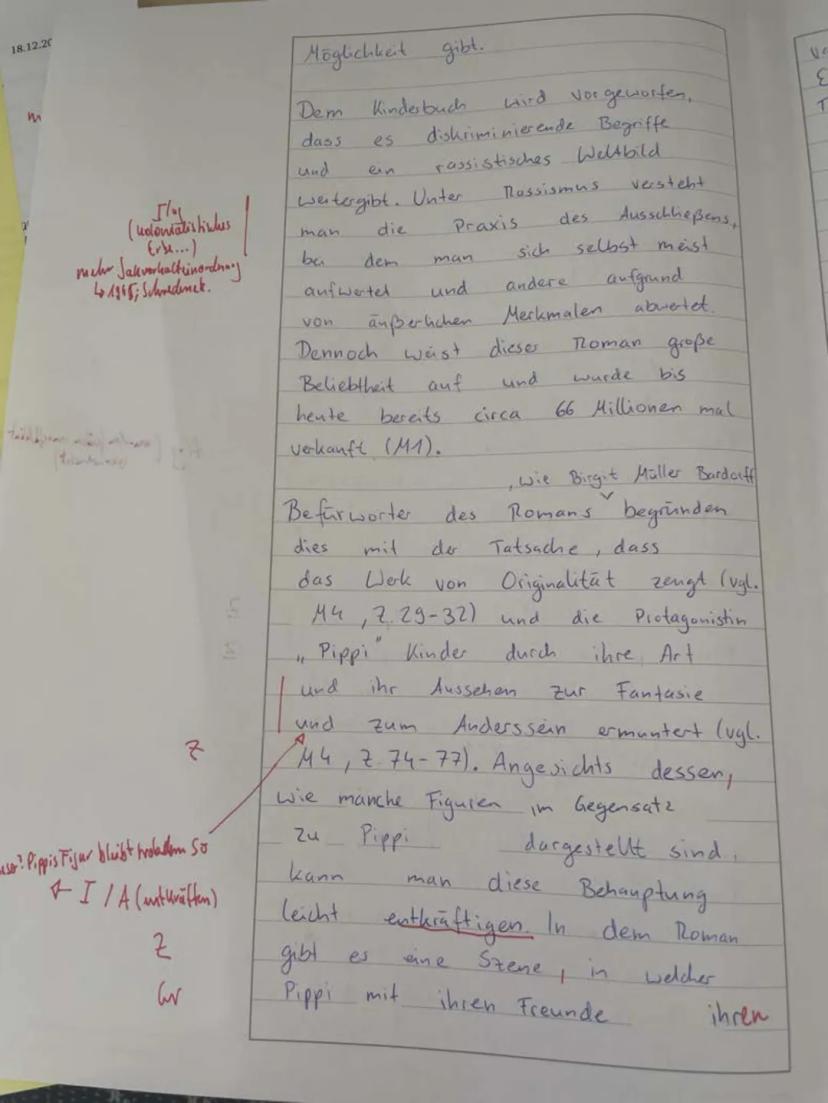 18.12.20
Möglichkeit gibt.
Dem Kinderbuch wird vorgeworfen,
dass es diskriminierende Begriffe
und ein rassistisches Weltbild
weitergibt. Unter Rassismus versteht
man die Praxis des Ausschließens,
bei dem man sich selbst meist
aufwertet und andere aufgrund
von äußerlichen Merkmalen abwertet.
Dennoch weist dieser Roman große
Beliebtheit auf und wurde bis
heute bereits circa 66 Millionen mal
verkauft (M1).
, wie Birgit Müller Bardorff
Befürworter des Romans begründen
dies mit der Tatsache, dass
das Werk von Originalität zeugt (vgl.
M4, Z. 29-32) und die Protagonistin
„Pippi" Kinder durch ihre Art
und ihr Aussehen zur Fantasie
und zum Anderssein ermuntert (vgl.
M4, Z. 74-77). Angesichts dessen,
wie manche Figuren im Gegensatz
zu Pippi dargestellt sind,
kann man diese Behauptung
leicht entkräftigen. In dem Roman
gibt es eine Szene, in welcher
Pippi mit ihren Freunde ihren
(kolonialistisches
Erbe...)
mehr Sachverhalteinordnung
Z
Pippis Figur bleibt trotzdem so
← I / A (entkräften)
Z
Gr